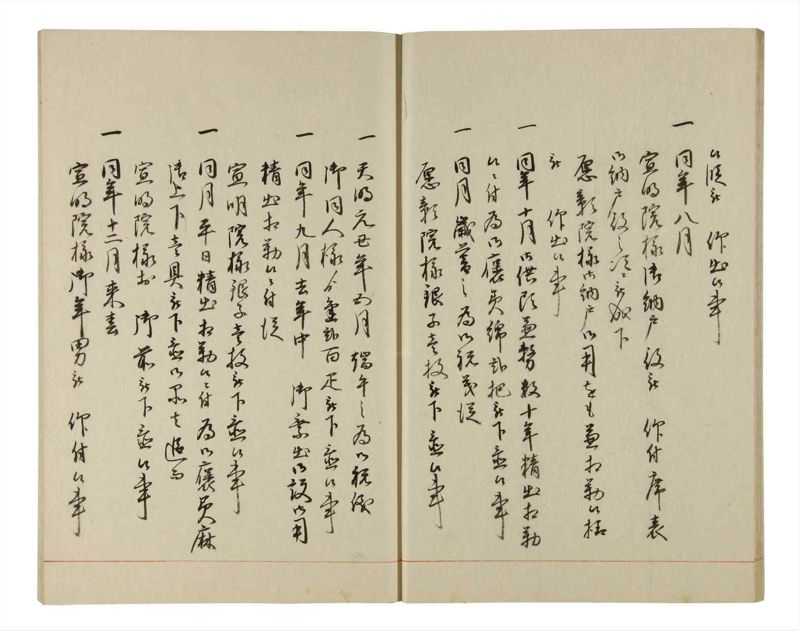 候段被 仰出候事
一 同年八月
宣明院様御納戸役被 仰付席表
御納戸役之次ニ被成下
愿彰院様御納戸御用をも兼相勤候様
被 仰出候事
一 同年十月御供頭兼務数十年精出相勤
候ニ付為御褒美綿弐把被下置候事
一 同月歳暮之為御祝義従
愿彰院様銀子壱枚被下置候事
一 天明元丑年五月端午之為御祝儀
御同人様ゟ金弐百疋被下置候事
一 同年九月去年中 御乗出御設御用
精出相勤候ニ付従
宣明院様銀子壱枚被下置候事
一 同月平日精出相勤候ニ付為御褒美麻
御上下壱具被下置候
宣明院様於 御前被下置候事
一 同年十二月来春
宣明院様御年男被 仰付候事